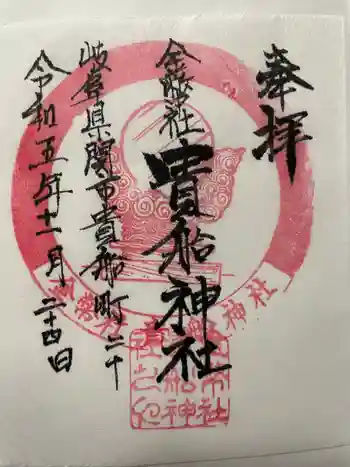 奉拝
金幣社
貴船神社
岐阜県関市貴船町二十
令和五年十一月二十四日
金幣社
神社